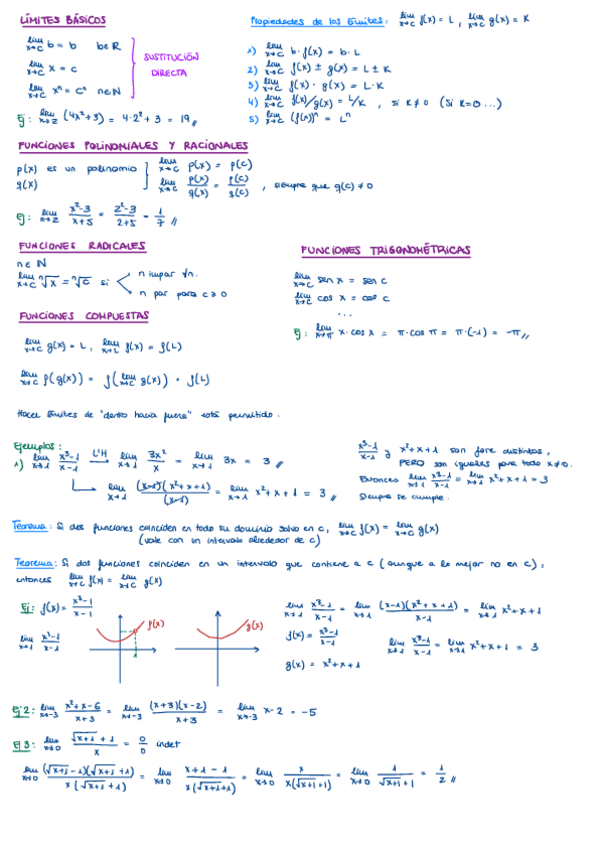 LÍMITES BÁSICOS
lim x→c b = b   b∈ℝ
lim x→c x = c
lim x→c xⁿ = cⁿ   n∈ℕ
SUSTITUCIÓN
DIRECTA
Ej: lim x→2 (4x²+3) = 4·2²+3 = 19 //
Propiedades de los límites: lim x→c f(x) = L , lim x→c g(x) = K
1) lim x→c b·f(x) = b·L
2) lim x→c f(x) ± g(x) = L ± K
3) lim x→c f(x) · g(x) = L·K
4) lim x→c f(x)/g(x) = L/K , si K≠0 (Si K=0 ...)
5) lim x→c (f(x))ⁿ = Lⁿ
FUNCIONES POLINOMIALES Y RACIONALES
p(x) es un polinomio } lim x→c p(x) = p(c)
q(x) } lim x→c p(x)/q(x) = p(c)/q(c) , siempre que q(c) ≠ 0
Ej: lim x→2 (x²-3)/(x+5) = (2²-3)/(2+5) = 1/7 //
FUNCIONES RADICALES
n∈ℕ
lim x→c ⁿ√x = ⁿ√c si
n impar ∀n.
n par para c ≥ 0
FUNCIONES TRIGONOMÉTRICAS
lim x→c sen x = sen c
lim x→c cos x = cos c
...
Ej: lim x→π x·cos x = π·cos π = π·(-1) = -π //
FUNCIONES COMPUESTAS
lim x→c g(x) = L , lim x→L f(x) = f(L)
lim x→c f(g(x)) = f(lim x→c g(x)) = f(L)
Hacer límites de "dentro hacia fuera" está permitido.
Ejemplos:
1) lim x→1 (x³-1)/(x-1) L'H→ lim x→1 3x²/x = lim x→1 3x = 3 //
lim x→1 (x-1)(x²+x+1)/(x-1) = lim x→1 x²+x+1 = 3 //
(x³-1)/(x-1) y x²+x+1 son fare distintas,
PERO son iguales para todo x≠0.
Entonces lim x→1 (x³-1)/(x-1) = lim x→1 x²+x+1 = 3
Siempre se cumple.
Teorema: Si dos funciones coinciden en todo su dominio salvo en c, lim x→c f(x) = lim x→c g(x)
(vale con un intervalo alrededor de c)
Teorema: Si dos funciones coinciden en un intervalo que contiene a c (aunque a lo mejor no en c),
entonces lim x→c f(x) = lim x→c g(x)
Ej: f(x) = (x³-1)/(x-1)
lim x→1 (x³-1)/(x-1)
f(x)
1
g(x)
lim x→1 (x³-1)/(x-1) = lim x→1 (x-1)(x²+x+1)/(x-1) = lim x→1 x²+x+1
f(x) = (x³-1)/(x-1)
lim x→1 (x³-1)/(x-1) = lim x→1 x²+x+1 = 3
g(x) = x²+x+1
Ej 2: lim x→-3 (x²+x-6)/(x+3) = lim x→-3 (x+3)(x-2)/(x+3) = lim x→-3 x-2 = -5
Ej 3: lim x→0 (√(x+1) + 1)/x = 0/0 indet
lim x→0 (√(x+1) - 1)(√(x+1) + 1)/(x(√(x+1) + 1)) = lim x→0 (x+1-1)/(x(√(x+1)+1)) = lim x→0 x/(x(√(x+1)+1)) = lim x→0 1/(√(x+1)+1) = 1/2 //